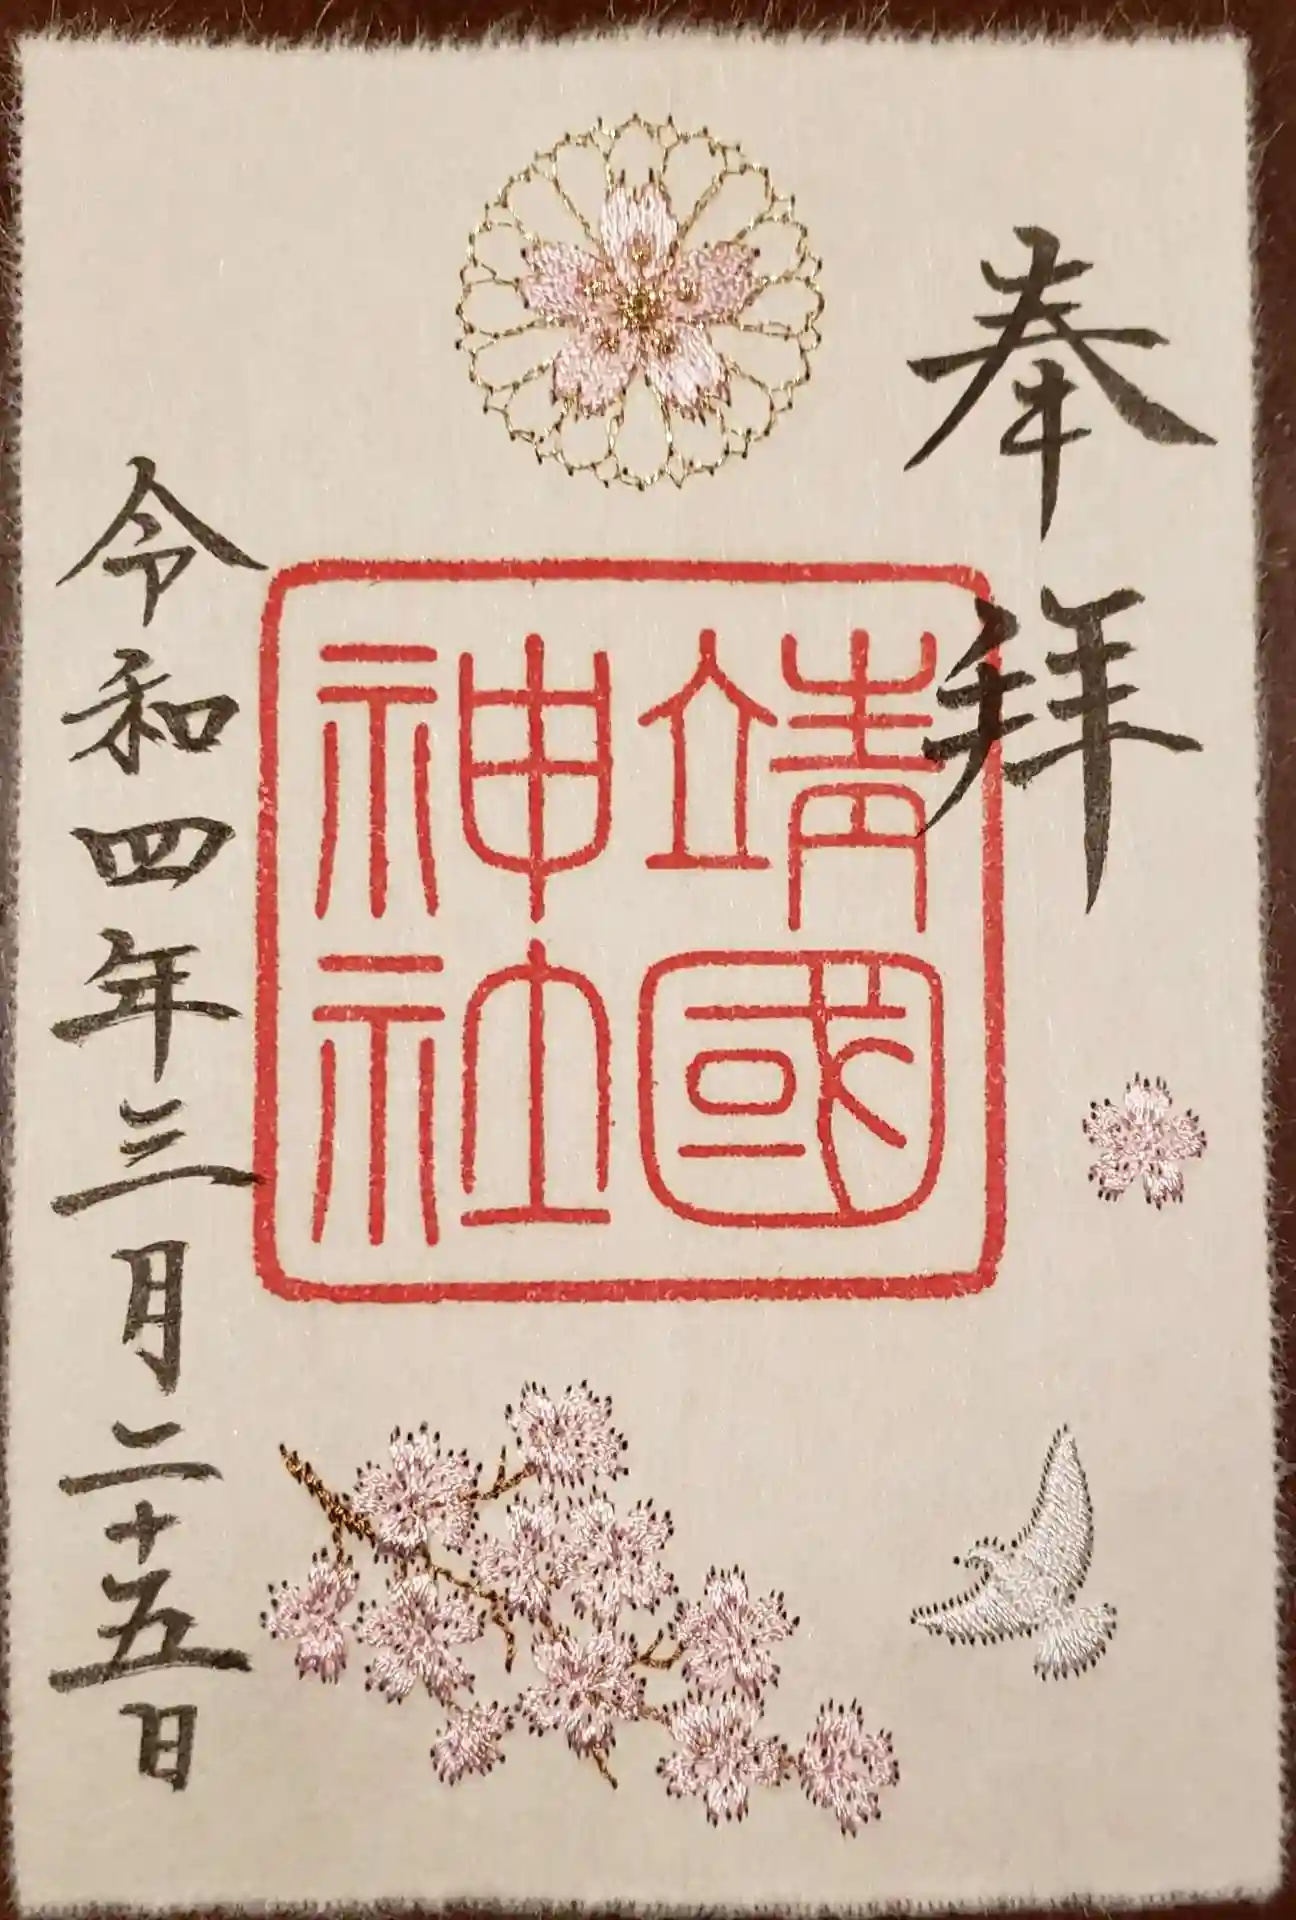 奉拝
靖國
神社
令和四年三月二十五日